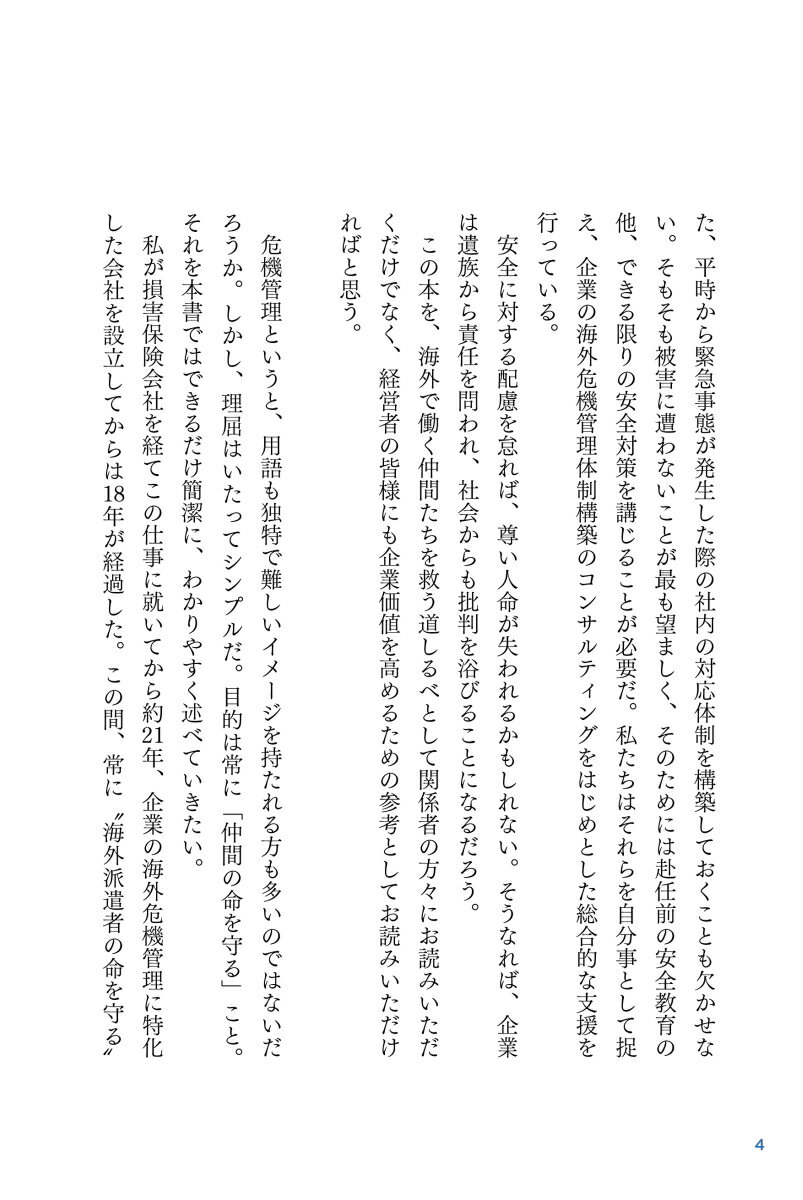 た、平時から緊急事態が発生した際の社内の対応体制を構築しておくことも欠かせな
い。そもそも被害に遭わないことが最も望ましく、そのためには赴任前の安全教育の
他、できる限りの安全対策を講じることが必要だ。私たちはそれらを自分事として捉
え、企業の海外危機管理体制構築のコンサルティングをはじめとした総合的な支援を
行っている。
安全に対する配慮を怠れば、尊い人命が失われるかもしれない。そうなれば、企業
は遺族から責任を問われ、社会からも批判を浴びることになるだろう。
この本を、海外で働く仲間たちを救う道しるべとして関係者の方々にお読みいただ
くだけでなく、経営者の皆様にも企業価値を高めるための参考としてお読みいただけ
ればと思う。
危機管理というと、用語も独特で難しいイメージを持たれる方も多いのではないだ
ろうか。しかし、理屈はいたってシンプルだ。目的は常に「仲間の命を守る」こと。
それを本書ではできるだけ簡潔に、わかりやすく述べていきたい。
私が損害保険会社を経てこの仕事に就いてから約21年、企業の海外危機管理に特化
した会社を設立してからは18年が経過した。この間、常に〝海外派遣者の命を守る〟
4